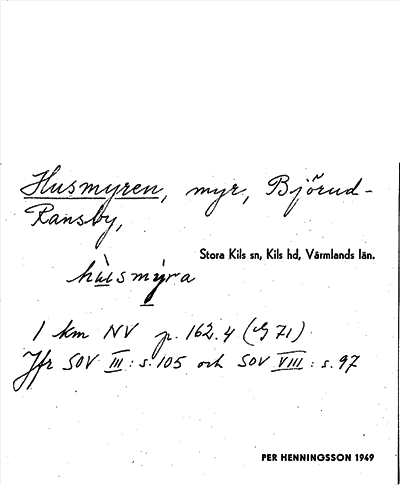 Husmyren, myr, Björud-
Ransby,
Stora Kils sn, Kils hd, Värmlands län.
hùsmýra
1 km NV p. 162.4 (G 71)
Jfr SOV III: s. 105 och SOV VIII: s. 97
PER HENNINGSSON 1949